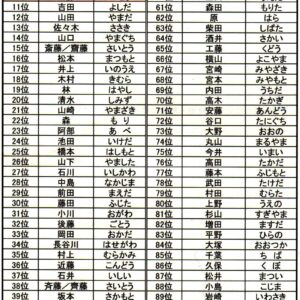 11位 吉田 よしだ 61位 森田 もりた
12位 山田 やまだ 62位 原 はら
13位 佐々木 ささき 63位 柴田 しばた
14位 山口 やまぐち 64位 酒井 さかい
15位 斎藤／齋藤 さいとう 65位 工藤 くどう
16位 松本 まつもと 66位 横山 よこやま
17位 井上 いのうえ 67位 宮崎 みやざき
18位 木村 きむら 68位 宮本 みやもと
19位 林 はやし 69位 内田 うちだ
20位 清水 しみず 70位 高木 たかぎ
21位 山崎 やまざき 71位 安藤 あんどう
22位 森 もり 72位 谷口 たにぐち
23位 阿部 あべ 73位 大野 おおの
24位 池田 いけだ 74位 丸山 まるやま
25位 橋本 はしもと 75位 今井 いまい
26位 山下 やました 76位 高田 たかだ
27位 石川 いしかわ 77位 藤本 ふじもと
28位 中島 なかじま 78位 武田 たけだ
29位 前田 まえだ 79位 村田 むらた
30位 藤田 ふじた 80位 上野 うえの
31位 小川 おがわ 81位 杉山 すぎやま
32位 後藤 ごとう 82位 増田 ますだ
33位 岡田 おかだ 83位 平野 ひらの
34位 長谷川 はせがわ 84位 大塚 おおつか
35位 村上 むらかみ 85位 千葉 ちば
36位 近藤 こんどう 86位 久保 くぼ
37位 石井 いしい 87位 松井 まつい
38位 斉藤／齊藤 さいとう 88位 小島 こじま
39位 坂本 さかもと 89位 岩崎 いわさき